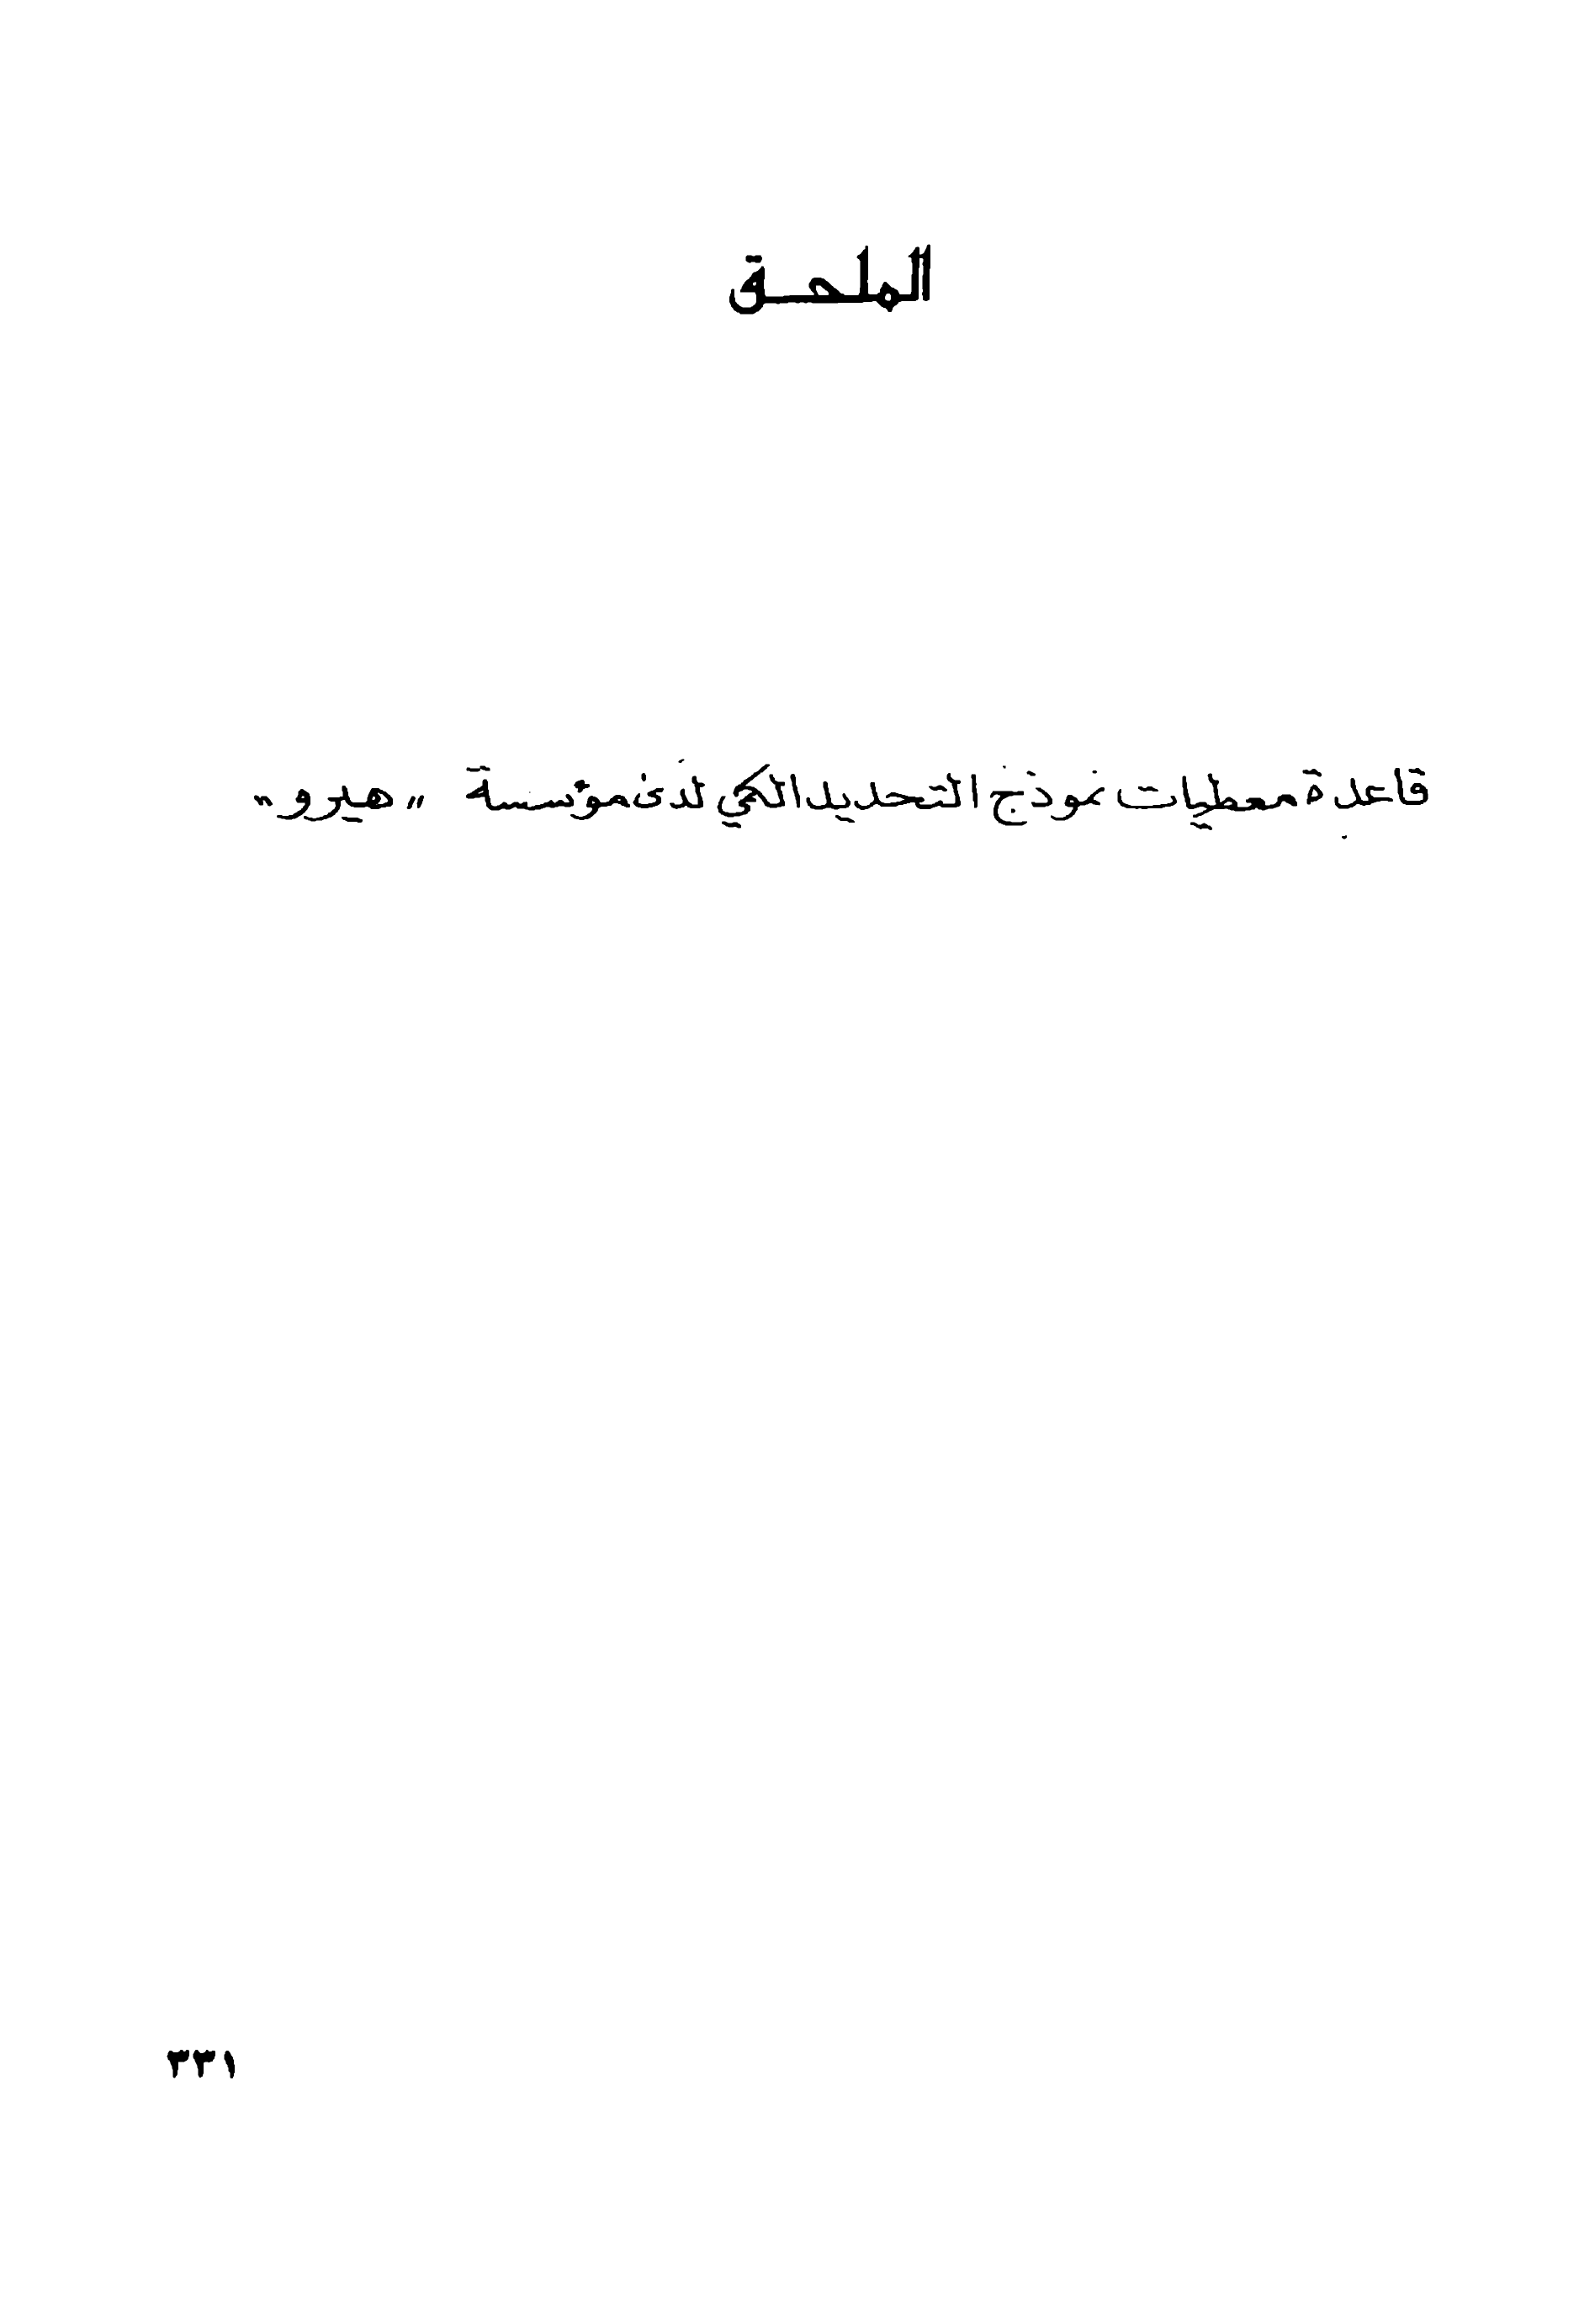 الملحق
قاعدة معطيات نموذج التحديد الكمي لدى مؤسسة «هيرو»
٣٣١